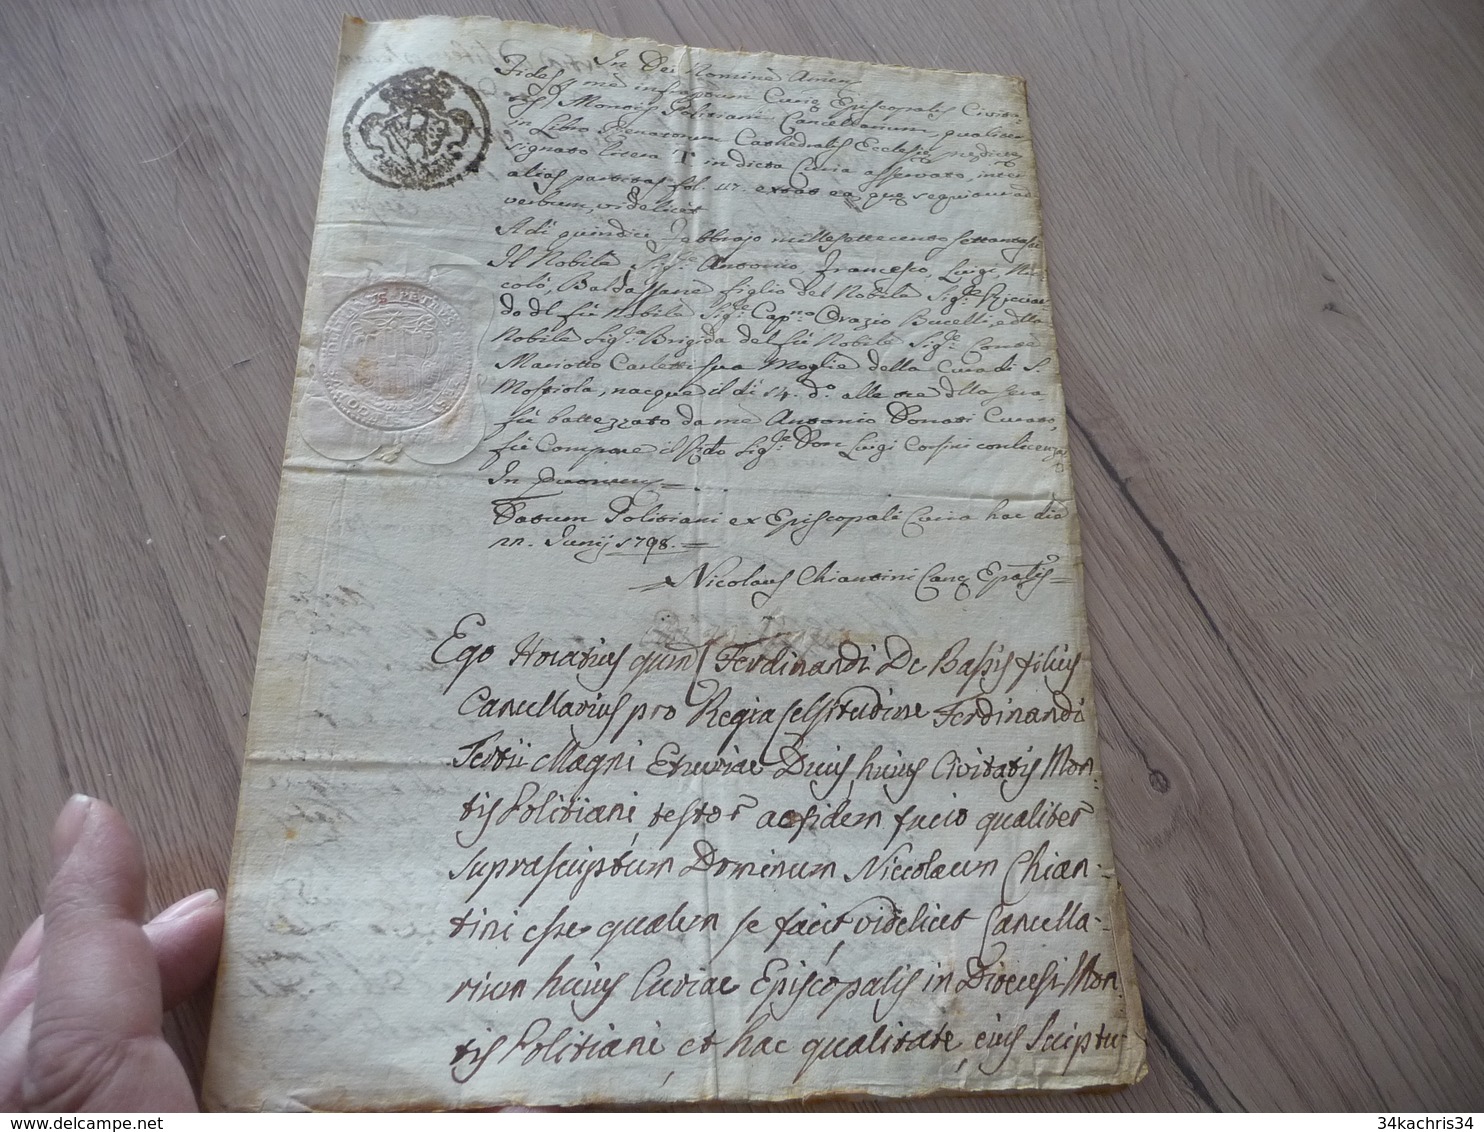 In Dei Nomine Amen
Fides p me infrascriptum Canc Episcopalis Civita:
tis Montis Politiani Cancellarium, qualiter
in Libro Renatorum Cathedralis Ecclesie predicte
signato litera T in dicta Curia asservato, inter
alias partitas fol. 117. extat ea, que sequitur ad
verbum, videlicet
A di quindici Febbrajo millesettecento settantasei
Il Nobile Sig.e Antonio, Francesco, Luigi, Nic
colò, Baldassarre figlio del Nobile Sig.e Ricciar
do del fù Nobile Sig.e Cap.no Orazio Bucelli, e della
Nobile Sig.a Brigida del fù Nobile Sig.e Conte
Mariotto Carletti sua Moglie della Cura di S.
Mostiola, nacque il dì 14. d.o alle ore della sera
fù battezzato da me Antonio Donati Curato,
fù Compare il Sig.e Don Luigi Corsini con licenza
In quorum =
Datum Politiani ex Episcopali Curia hac die
22. Junij 1798. =
Nicolaus Chiantini Canc Epalis =
Ego Horatius qum Ferdinandi De Bassis filius
Cancellarius pro Regia Celsitudine Ferdinandi
Tertii Magni Etruriae Ducis huius Civitatis Mon-
tis Politiani testor ac fidem facio qualiter
suprascriptum Dominum Niccolaum Chian-
tini esse qualem se facit videlicet Cancella-
rium huius Curiae Episcopalis in Diocesi Mon-
tis Politiani, et hac qualitate eius Scriptu-
34kachris34